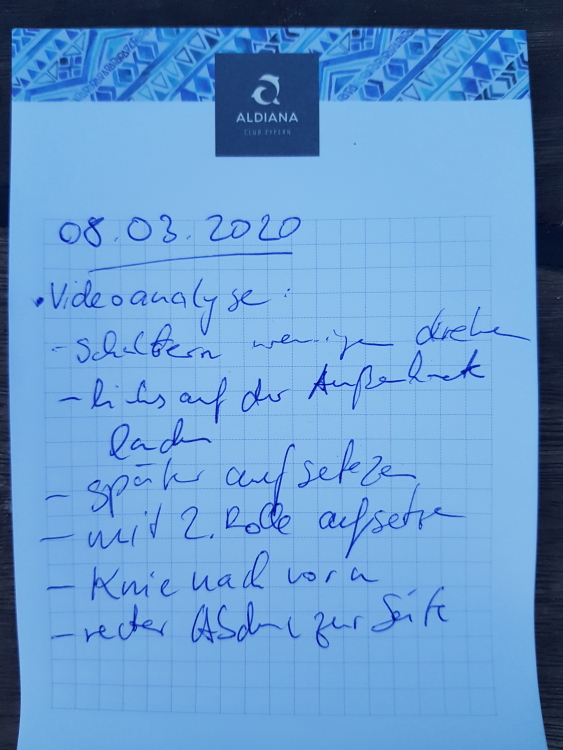 ALDIANA
CLUB ZYPERN
08.03.2020
• Videoanalyse:
- Schultern weniger drehen
- links auf der Außenkante
landen
- später aufsetzen
- mit 2. Rolle aufsetzen
- Knie nach vorn
- rechter zur Seite